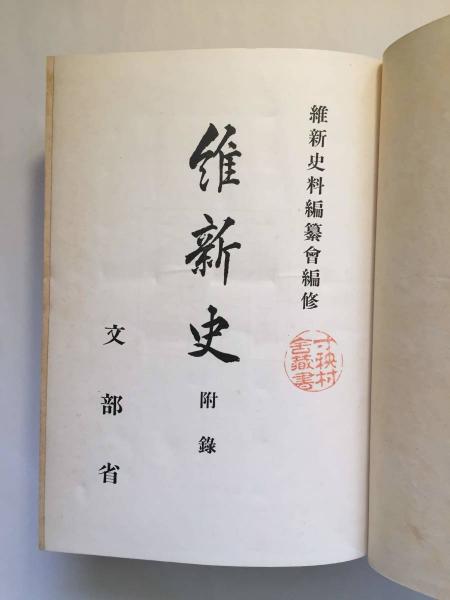 維新史料編纂會編修
維新史
附錄
文部省
寸秧村
舍藏書